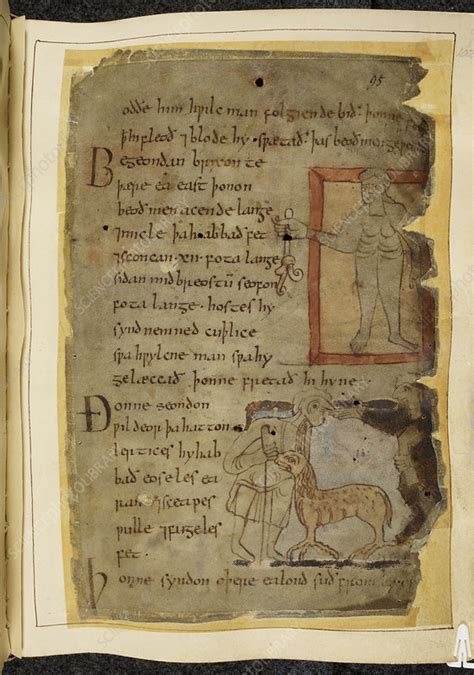 95
oððe him hƿilc man folgiende bið· þonne
fleoð ⁊ blode hy · sƿætað · þas beoð men
Begeondan brixonte
þære ea east þonon
beoð men acende lange
⁊ micle þa habbað fet
⁊ sconcan · xii · fota lange
sidan mid breostū seofon
fota lange · hostes hy
synd nemned cuþlice
sƿa hƿylcne man sƿa hy
gelæccað þonne fretað hi hyne ·
Ðonne seondon
ƿildeor þa hatton
lertices hy hab
bað eoseles ea
ran ⁊ sceapes
ƿulle ⁊ fugeles
fet ·
Þonne syndon oþere ealond suð from